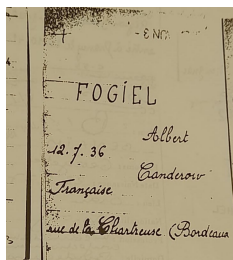 FOGIEL
Albert
12.7.36
Canderow
Française
rue de la Chartreuse (Bordeaux